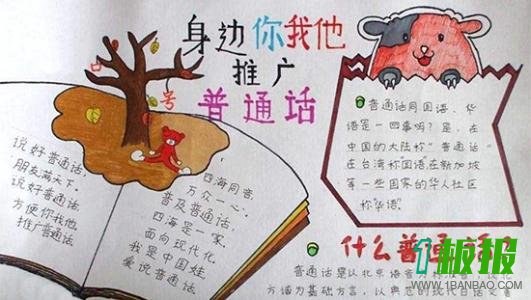 身边你我他
推广
普通话
号
说好普通话,
朋友满天下,
说好普通话
方便你我他
推广普通话
四海同音,
万众一心,
普及普通话,
四海是一家,
面向现代化,
我是中国娃,
爱说普通话
普通话同国语、华
语是一回事吗?是,在
中国的大陆称"普通话"
在台湾称国语,在新加坡
等一些国家的华人社区
称"华语"
什么普通话?
普通话是以北京语音
方话为基础方言,以典范的现代白话文著
1板报
WWW.1BANBAO.COM